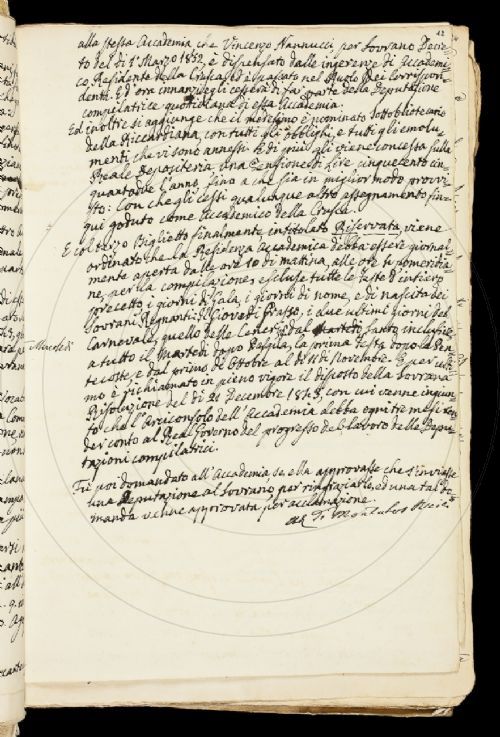 42
alla stessa Accademia che Vincenzo Nannucci, per Sovrano Decre-
to del dì 1° Marzo 1852, è dispensato dalle ingerenze di Accademi-
co Residente della Crusca ed è passato nel Ruolo dei Corrispon-
denti. E d'ora innanzi egli cesserà di far parte della Deputazione
compilatrice quotidiana di essa Accademia.
Ed inoltre si aggiunge che il medesimo è nominato Sottobibliotecario
della Riccardiana, con tutti gli obblighi, e tutti gli emolu-
menti che vi sono annessi. E di più gli viene concessa sulla
Reale Depositeria una Pensione di Lire cinquecento cin-
quanta l'anno, fino a che sia in miglior modo provvi-
sto: Con che gli cessi qualunque altro assegnamento fin
qui goduto come Accademico della Crusca.
E col terzo Biglietto finalmente intitolato Riservata, viene
ordinato che la Residenza Accademica debba essere giornal-
mente aperta dalle ore 10 di mattina, alle ore pomeridia-
ne, per la compilazione, escluse tutte le feste d'intiero
precetto, i giorni di Gala, i giorni di nome, e di nascita dei
Sovrani Regnanti: il Giovedì Grasso, i due ultimi giorni del
Carnevale, quello delle Ceneri, dal Santo inclusive
Mercoledì
a tutto il Martedì dopo Pasqua, la prima Festa dopo la Pen-
tecoste, e dal primo di Ottobre al dì 11 di Novembre. E per ulti-
mo è richiamato in pieno vigore il disposto della Sovrana
Risoluzione del dì 21 Dicembre 1843, con cui venne ingiun-
to che l'Arciconsolo dell'Accademia debba ogni tre mesi ren-
der conto al Real Governo del progresso del lavoro delle Depu-
tazioni compilatrici.
Fu poi domandato all'Accademia, se ella approvasse che s'inviasse
una Deputazione al Sovrano per ringraziarlo, ed una tal do-
manda venne approvata per acclamazione.